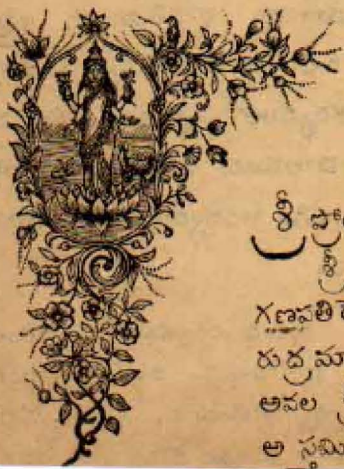 శ్రీ
శ్రీ
గణపతి
రుద్రమ
అవల
అ సమి